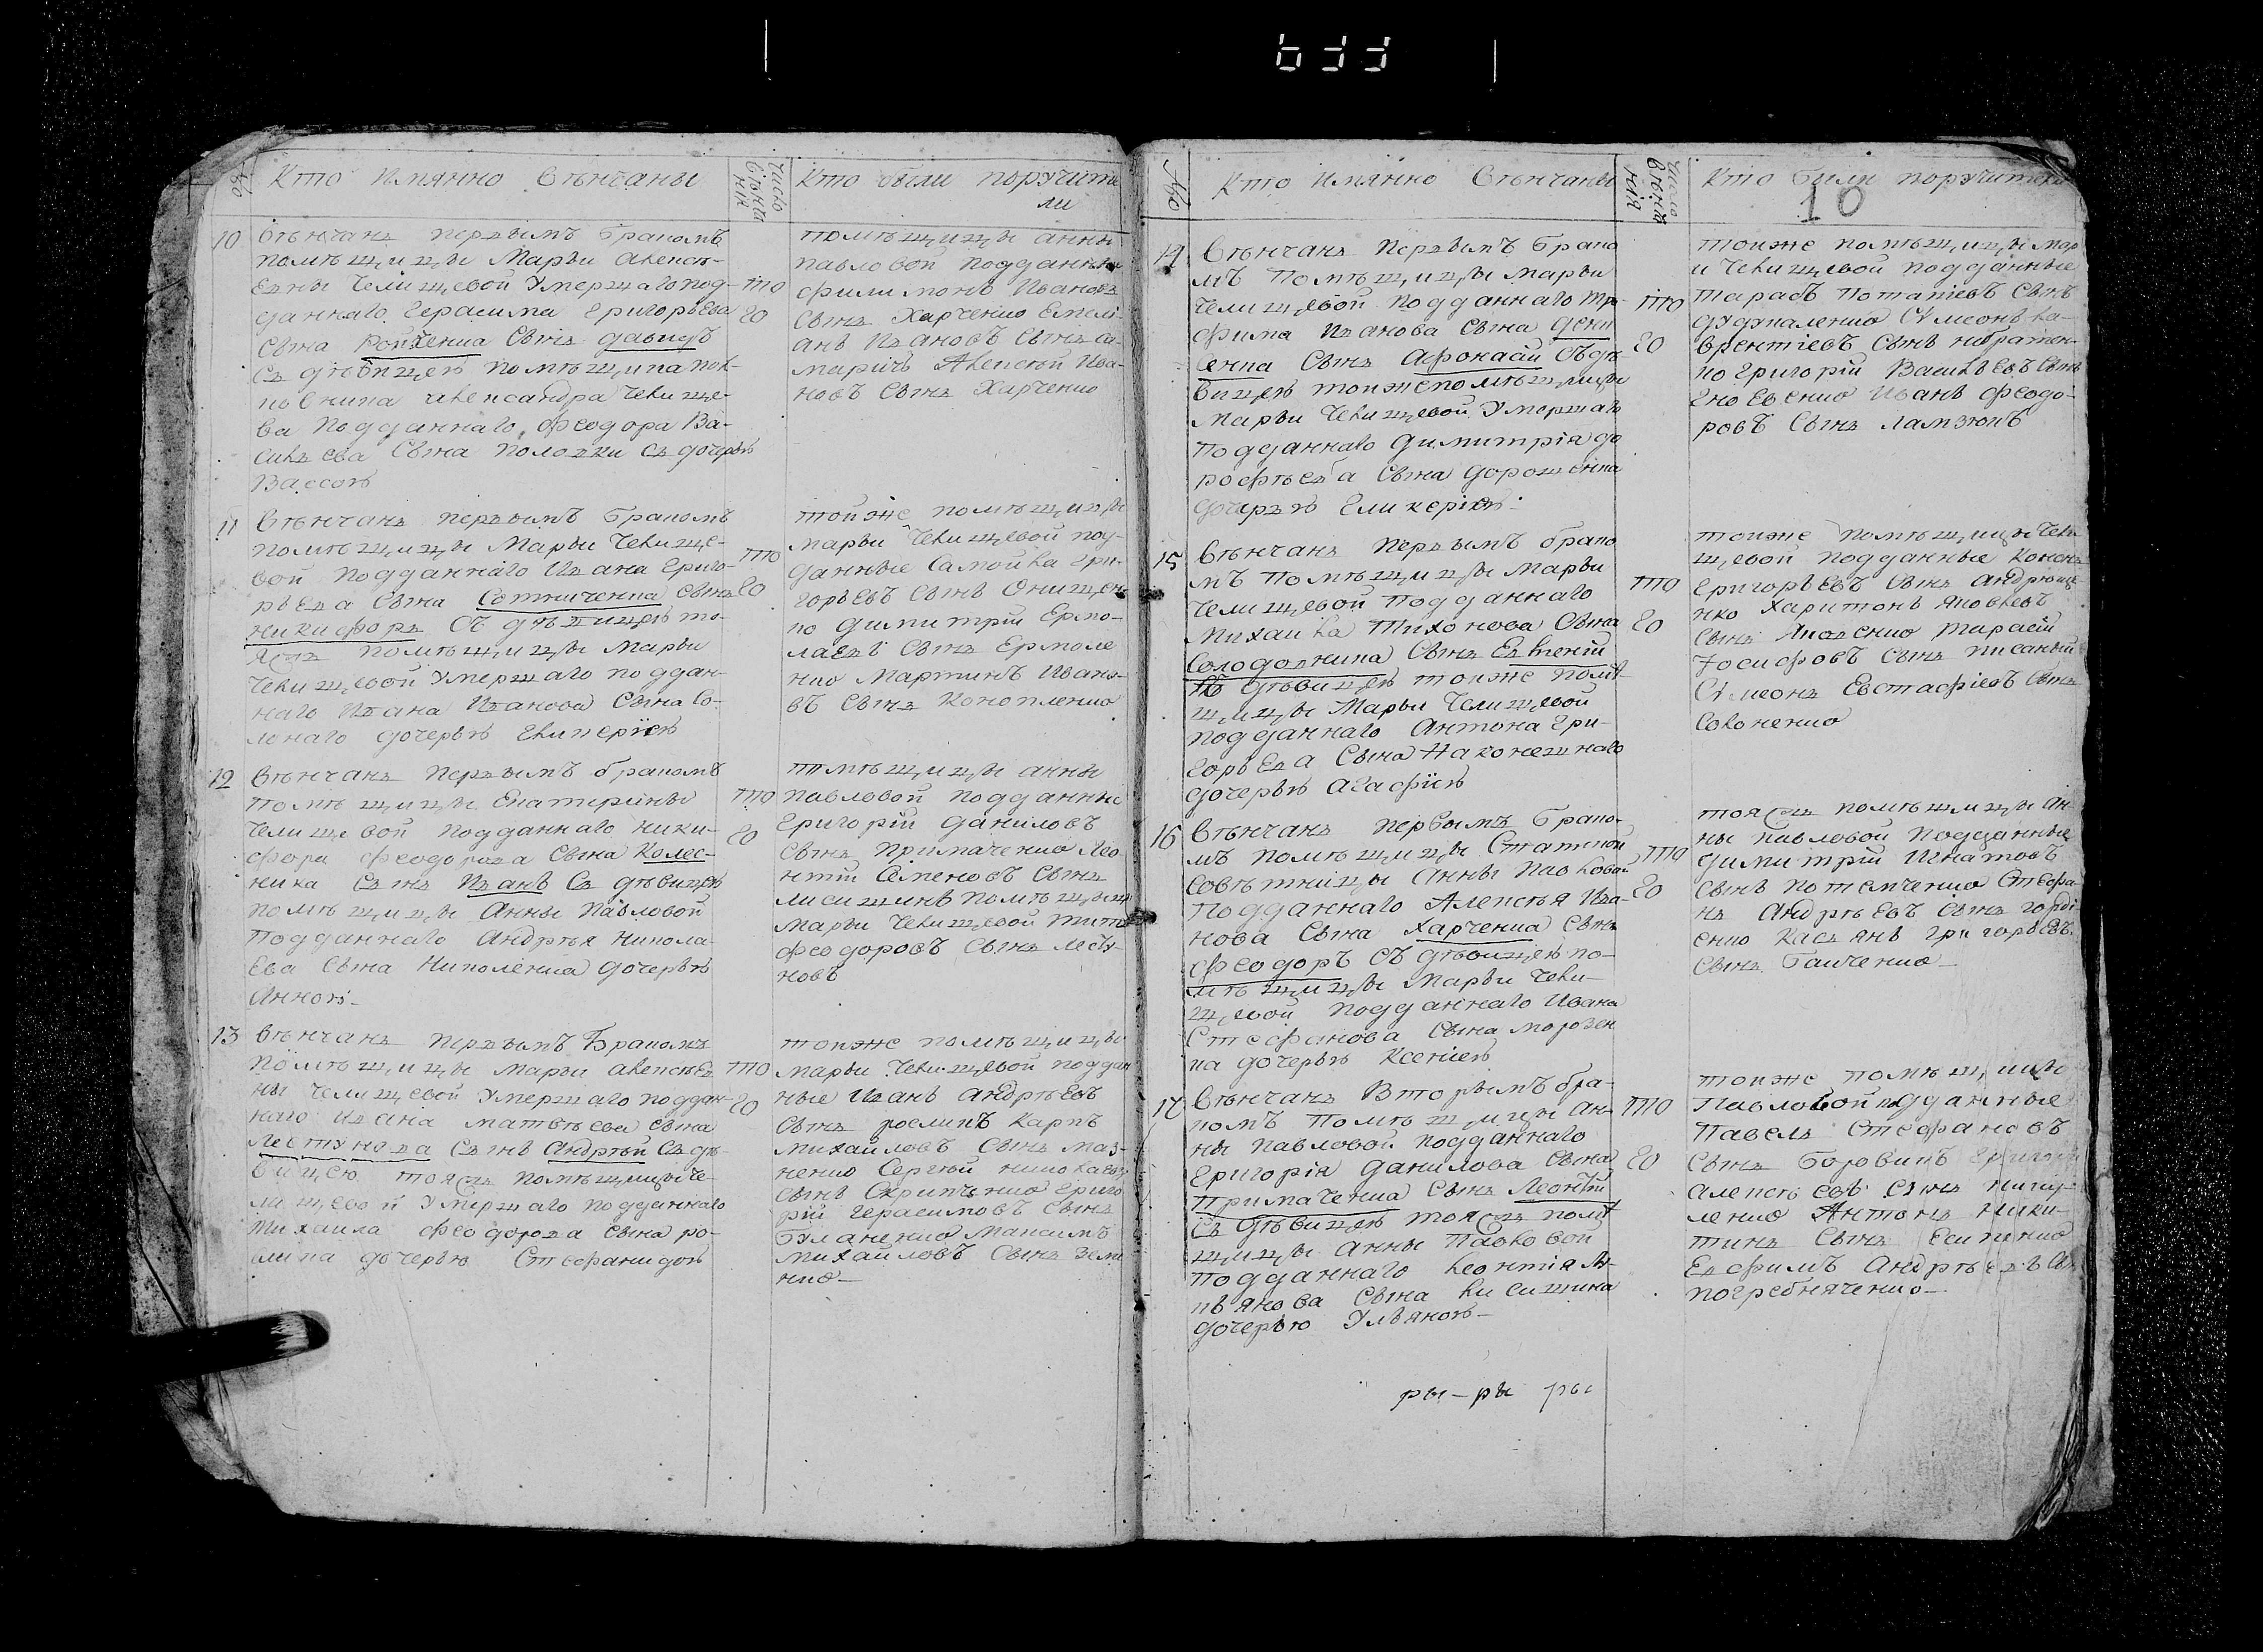 10
№
Кто Имянно Вѣнчаны
Число вѣнчания
Кто были поручите
ли
10
вѣнчанъ первымъ бракомъ
помѣщицы Марьи Алексѣ-
евны Челищевой умершаго под-
даннаго Герасима Григорьева
сына сынъ Давидъ
съ дѣвицею помѣщика пол-
ковника Александра Челище-
ва подданнаго Феодора Ва-
сильева сына съ дочерью
Вассою
того
помѣщицы Анны
Павловой подданные
Филимонъ Ивановъ
сынъ Харченко Емели-
анъ Ивановъ сынъ са-
маричъ Алексѣй Ива-
новъ сынъ Харченко
11
вѣнчанъ первымъ бракомъ
помѣщицы Марьи Челище-
вой подданнаго Ивана Григо-
рьева сына Сотниченка сынъ
Никифоръ съ дѣвицею то-
яжъ помѣщицы Марьи
Челищевой умершаго поддан-
наго Ивана Иванова сына Со-
лонаго дочерью Гликериею
того
тойже помѣщицы
Марьи Челищевой под-
данные Самойла Гри-
горьевъ сынъ Онищен-
ко Димитрій Ермо-
лаевъ сынъ Ермоле
нко Мартинъ Ивано-
въ сынъ Коноплено
12
вѣнчанъ первымъ бракомъ
помѣщицы Екатерины
Челищевой подданнаго Ники-
фора Феодорова сына Колес-
ника сынъ Иванъ съ дѣвицею
помѣщицы Анны Павловой
подданнаго Андрѣя Никола-
ева сына Николенка дочерью
Анною-
того
помѣщицы Анны
Павловой подданные
Григорій Даниловъ
сынъ Примаченко Лео-
нтій Семеновъ сынъ
Лисишинъ помѣщицы
Марьи Челищевой Титъ
Феодоровъ сынъ
новъ
13
вѣнчанъ первымъ бракомъ
помѣщицы Марьи Алексѣев
ны Челищевой умершаго поддан-
наго Ивана Матвѣева сына
сынъ Андрѣй съ дѣ-
вицею тояжъ помѣщицы Че-
лищевой умершаго подданнаго
Михаила Феодорова сына ро-
лика дочерью Стефанидою
того
тоиже помѣщицы
Марьи Челищевой поддан
ные Иванъ Андрѣевъ
сынъ Карпъ
Михайловъ сынъ Маз-
ненко Сергѣй Николаевъ
сынъ Скрипченко Григо
рій Герасимовъ сынъ
Максимъ
Михайловъ сынъ
нко-
№
Кто Имянно Вѣнчаны
Число вѣнчания
Кто были поручители
14
вѣнчанъ первымъ брако
мъ помѣщицы Марьи
Челищевой подданнаго Тро-
фима Иванова сына Дени
сенка сынъ Афонасій съ дѣ-
вицею тоиже помѣщицы
Марьи Челищевой умершаго
подданнаго Димитрія до
рофѣева сына Дорошенка
дочерью Гликеріею-
того
тоиже помѣщицы Мар
и Челищевой подданные
Тарасъ Потапіевъ сынъ
Сѵмеонъ Ла-
врентіевъ сынъ
Григорій Васильевъ сынъ
Иванъ Феодо-
ровъ сынъ
15
вѣнчанъ первымъ брако
мъ помѣщицы Марьи
Челищевой подданнаго
Михаила Тихонова сына
Солодовника сынъ Евгеній
съ дѣвицею тоиже помѣ-
щицы Марьи Челищевой
подданнаго Антона Гри-
горьева сына Наконешнаго
дочерью Агафіею
того
тоиже помѣщицы Чели
щевой подданные Кононъ
Григорьевъ сынъ Андрюще
нко Харитонъ Яковлевъ
сынъ Яковенко Тарасій
Іосифовъ сынъ Писаный
Сѵмеонъ Евстафіевъ сынъ
16
вѣнчанъ первымъ брако-
мъ помѣщицы Статской
совѣтницы Анны Павловой
подданнаго Алексѣя Ива-
нова сына Харченка сынъ
Феодоръ съ дѣвицею по-
мѣщицы Марьи Чели-
щевой подданнаго Ивана
Стефанова сына Морозен
ка дочерью Ксеніею
того
тояжъ помѣщицы Ан-
ны Павловой подданные
Димитрій Игнатовъ
сынъ Стефа-
нъ Андрѣевъ сынъ Горді-
енко Касьянъ Григорьевъ
сынъ Ганченко-
17
вѣнчанъ вторымъ бра-
комъ помѣщицы Ан-
ны Павловой подданнаго
Григорія Данилова сына
Примаченка сынъ Леонтій
съ дѣвицею тояжъ помѣ
щицы Анны Павловой
подданнаго Леонтія
сына Лисишина
дочерью Ульяною-
того
тоиже помѣщицы
Павловой подданные
Павелъ Стефановъ
сынъ Боровикъ Григорій
Алексѣевъ сынъ
Антонъ Ники-
тинъ сынъ Есипенко
Евфимъ Андрѣевъ сы
погребняченко-
ры-ры ры